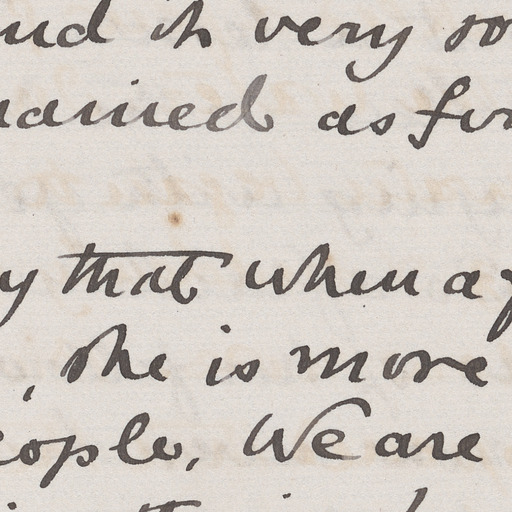 und it very so
married as for
y that when a g
, she is more
eople, We are